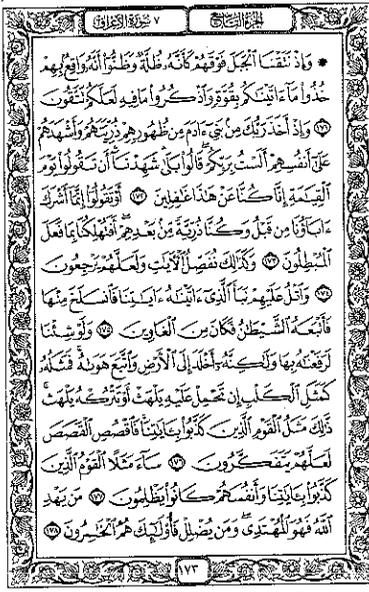 الجزء التاسع ٧ سورة الأعراف
۞ وَإِذۡ نَتَقۡنَا ٱلۡجَبَلَ فَوۡقَهُمۡ كَأَنَّهُۥ ظُلَّةٞ وَظَنُّوٓاْ أَنَّهُۥ وَاقِعُۢ بِهِمۡ
خُذُواْ مَآ ءَاتَيۡنَٰكُم بِقُوَّةٖ وَٱذۡكُرُواْ مَا فِيهِ لَعَلَّكُمۡ تَتَّقُونَ
١٧١ وَإِذۡ أَخَذَ رَبُّكَ مِنۢ بَنِيٓ ءَادَمَ مِن ظُهُورِهِمۡ ذُرِّيَّتَهُمۡ وَأَشۡهَدَهُمۡ
عَلَىٰٓ أَنفُسِهِمۡ أَلَسۡتُ بِرَبِّكُمۡۖ قَالُواْ بَلَىٰ شَهِدۡنَآۚ أَن تَقُولُواْ يَوۡمَ
ٱلۡقِيَٰمَةِ إِنَّا كُنَّا عَنۡ هَٰذَا غَٰفِلِينَ ١٧٢ أَوۡ تَقُولُوٓاْ إِنَّمَآ أَشۡرَكَ
ءَابَآؤُنَا مِن قَبۡلُ وَكُنَّا ذُرِّيَّةٗ مِّنۢ بَعۡدِهِمۡۖ أَفَتُهۡلِكُنَا بِمَا فَعَلَ
ٱلۡمُبۡطِلُونَ ١٧٣ وَكَذَٰلِكَ نُفَصِّلُ ٱلۡأٓيَٰتِ وَلَعَلَّهُمۡ يَرۡجِعُونَ
١٧٤ وَٱتۡلُ عَلَيۡهِمۡ نَبَأَ ٱلَّذِيٓ ءَاتَيۡنَٰهُ ءَايَٰتِنَا فَٱنسَلَخَ مِنۡهَا
فَأَتۡبَعَهُ ٱلشَّيۡطَٰنُ فَكَانَ مِنَ ٱلۡغَاوِينَ ١٧٥ وَلَوۡ شِئۡنَا
لَرَفَعۡنَٰهُ بِهَا وَلَٰكِنَّهُۥٓ أَخۡلَدَ إِلَى ٱلۡأَرۡضِ وَٱتَّبَعَ هَوَىٰهُۚ فَمَثَلُهُۥ
كَمَثَلِ ٱلۡكَلۡبِ إِن تَحۡمِلۡ عَلَيۡهِ يَلۡهَثۡ أَوۡ تَتۡرُكۡهُ يَلۡهَثۚ
ذَّٰلِكَ مَثَلُ ٱلۡقَوۡمِ ٱلَّذِينَ كَذَّبُواْ بِـَٔايَٰتِنَاۚ فَٱقۡصُصِ ٱلۡقَصَصَ
لَعَلَّهُمۡ يَتَفَكَّرُونَ ١٧٦ سَآءَ مَثَلًا ٱلۡقَوۡمُ ٱلَّذِينَ
كَذَّبُواْ بِـَٔايَٰتِنَا وَأَنفُسَهُمۡ كَانُواْ يَظۡلِمُونَ ١٧٧ مَن يَهۡدِ
ٱللَّهُ فَهُوَ ٱلۡمُهۡتَدِيۖ وَمَن يُضۡلِلۡ فَأُوْلَٰٓئِكَ هُمُ ٱلۡخَٰسِرُونَ ١٧٨
١٧٣